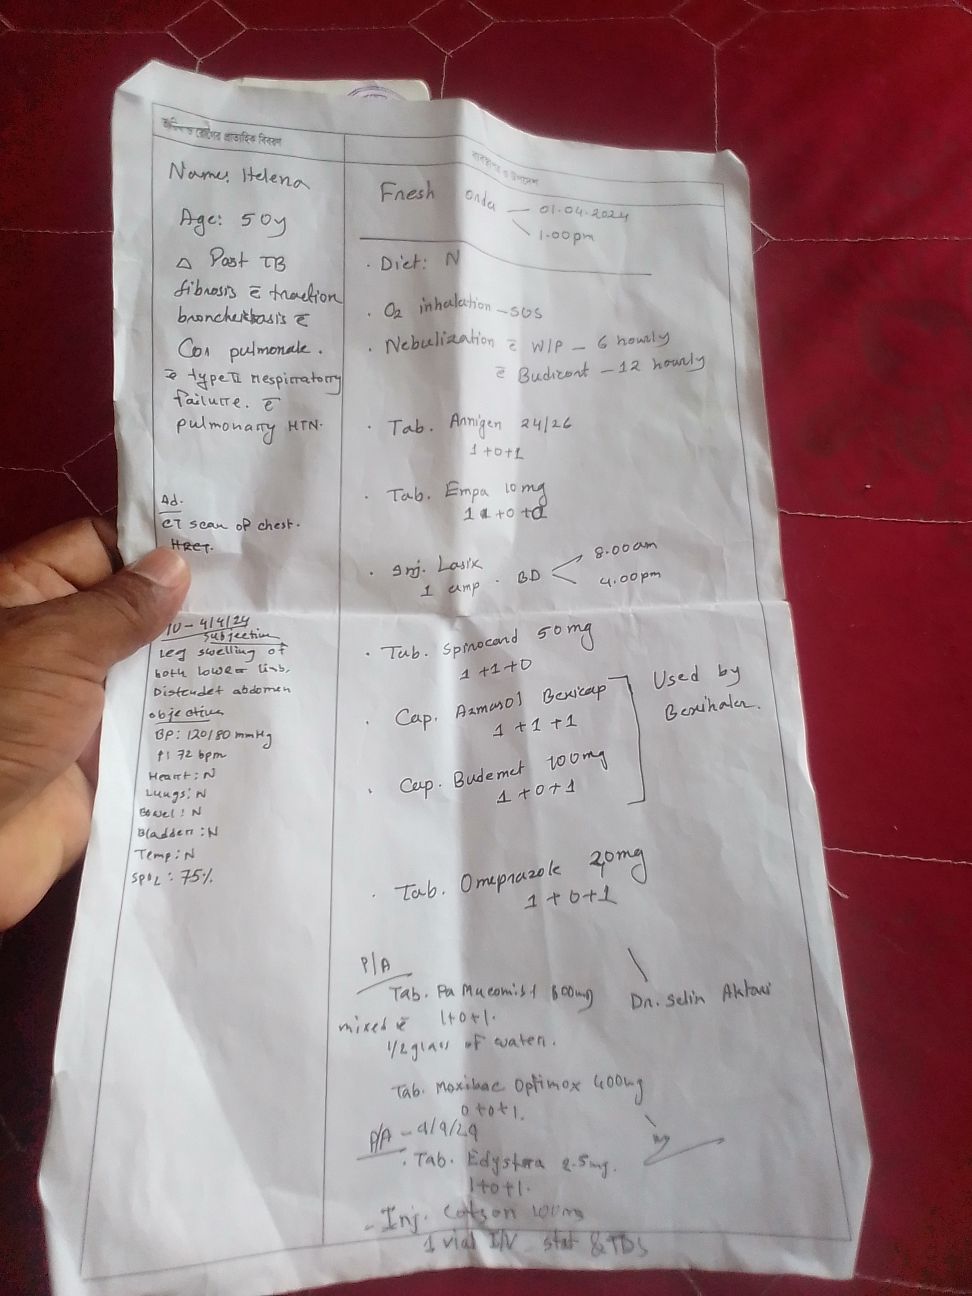 রোগের প্রাত্যহিক বিবরণ
Name: Helena
Age: 50y
Δ Post TB
fibrosis c̄ traction
bronchiectasis c̄
Cor pulmonale.
c̄ type II respirratorry
failurre. c̄
pulmonarry HTN.
Ad.
CT scan of chest.
HRCT.
4/4/24
Subjective
Leg swelling of
both lower limb,
Distendet abdomen
objective
BP: 120/80 mmHg
P: 72 bpm
Heart: N
Lungs: N
Bowel: N
Bladder: N
Temp: N
SPO2: 75%
ব্যবস্থাপত্র ও উপদেশ
Fresh order — 01.04.2024
1.00pm
. Diet: N
. O2 inhalation - SOS
. Nebulization c̄ W/P - 6 hourly
c̄ Budicort - 12 hourly
. Tab. Arnigen 24/26
1+0+1
. Tab. Empa 10mg
1+0+0
. Inj. Lasix
1 amp. BD < 8.00am
4.00pm
. Tab. Spirocard 50mg
1+1+0
. Cap. Azmasol Bexicap
1+1+1
. Cap. Budemet 100mg
1+0+1
Used by
Bexihaler.
. Tab. Omeprazole 20mg
1+0+1
Dr. Selin Aktar
P/A
Tab. Mucomist 600mg
mixed c̄ 1+0+1.
1/2 glass of water.
Tab. Moxibac Optimox 400mg
0+0+1.
P/A - 4/4/24
. Tab. 2.5mg.
1+0+1.
- Inj. Cotson 100mg
1 vial I/V stat & TDS